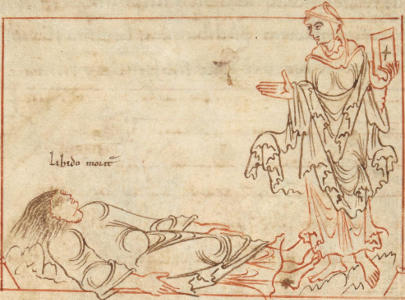 Libido morit̄